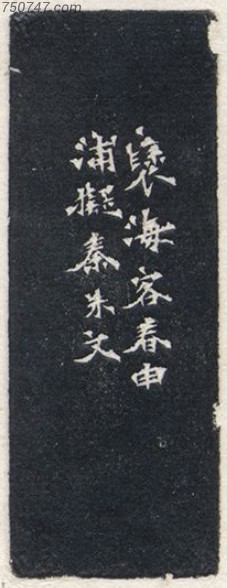 750747.com
褱海客春申
浦擬秦朱文